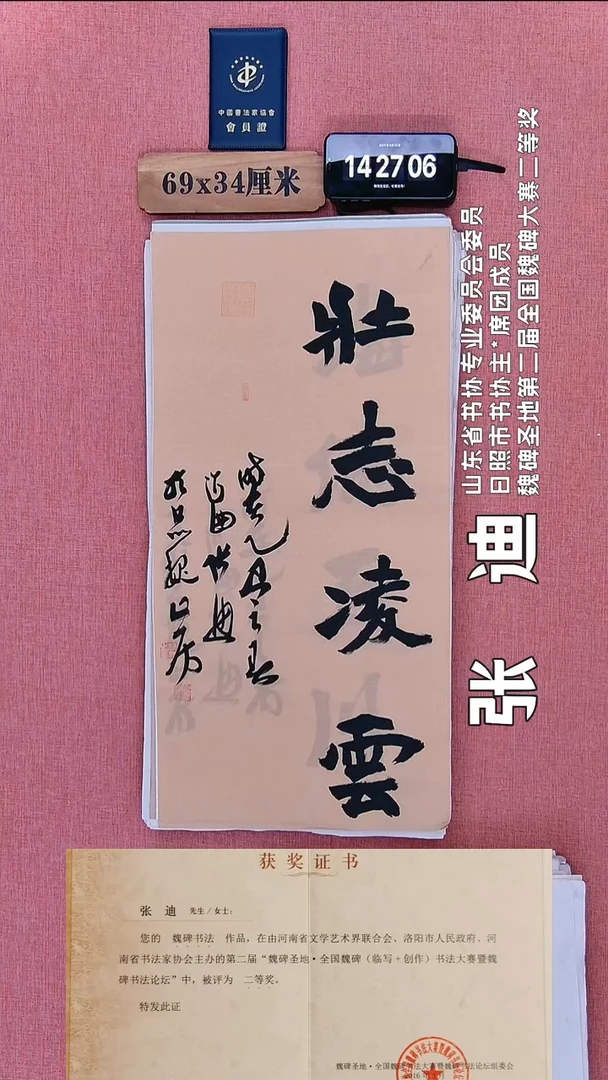 中國書法家協會
會員證
69x34厘米
14 27 06
壯志凌雲
山东省书协专业委员会委员
日照市书协主*席团成员
魏碑圣地第二届全国魏碑大赛二等奖
张迪
获奖证书
张 迪 先生/女士:
您的 魏碑书法 作品，在由河南省文学艺术界联合会、洛阳市人民政府、河
南省书法家协会主办的第二届“魏碑圣地·全国魏碑（临写+创作）书法大赛暨魏
碑书法论坛”中，被评为 二等奖。
特发此证
魏碑圣地·全国魏碑书法大赛暨魏碑书法论坛组委会